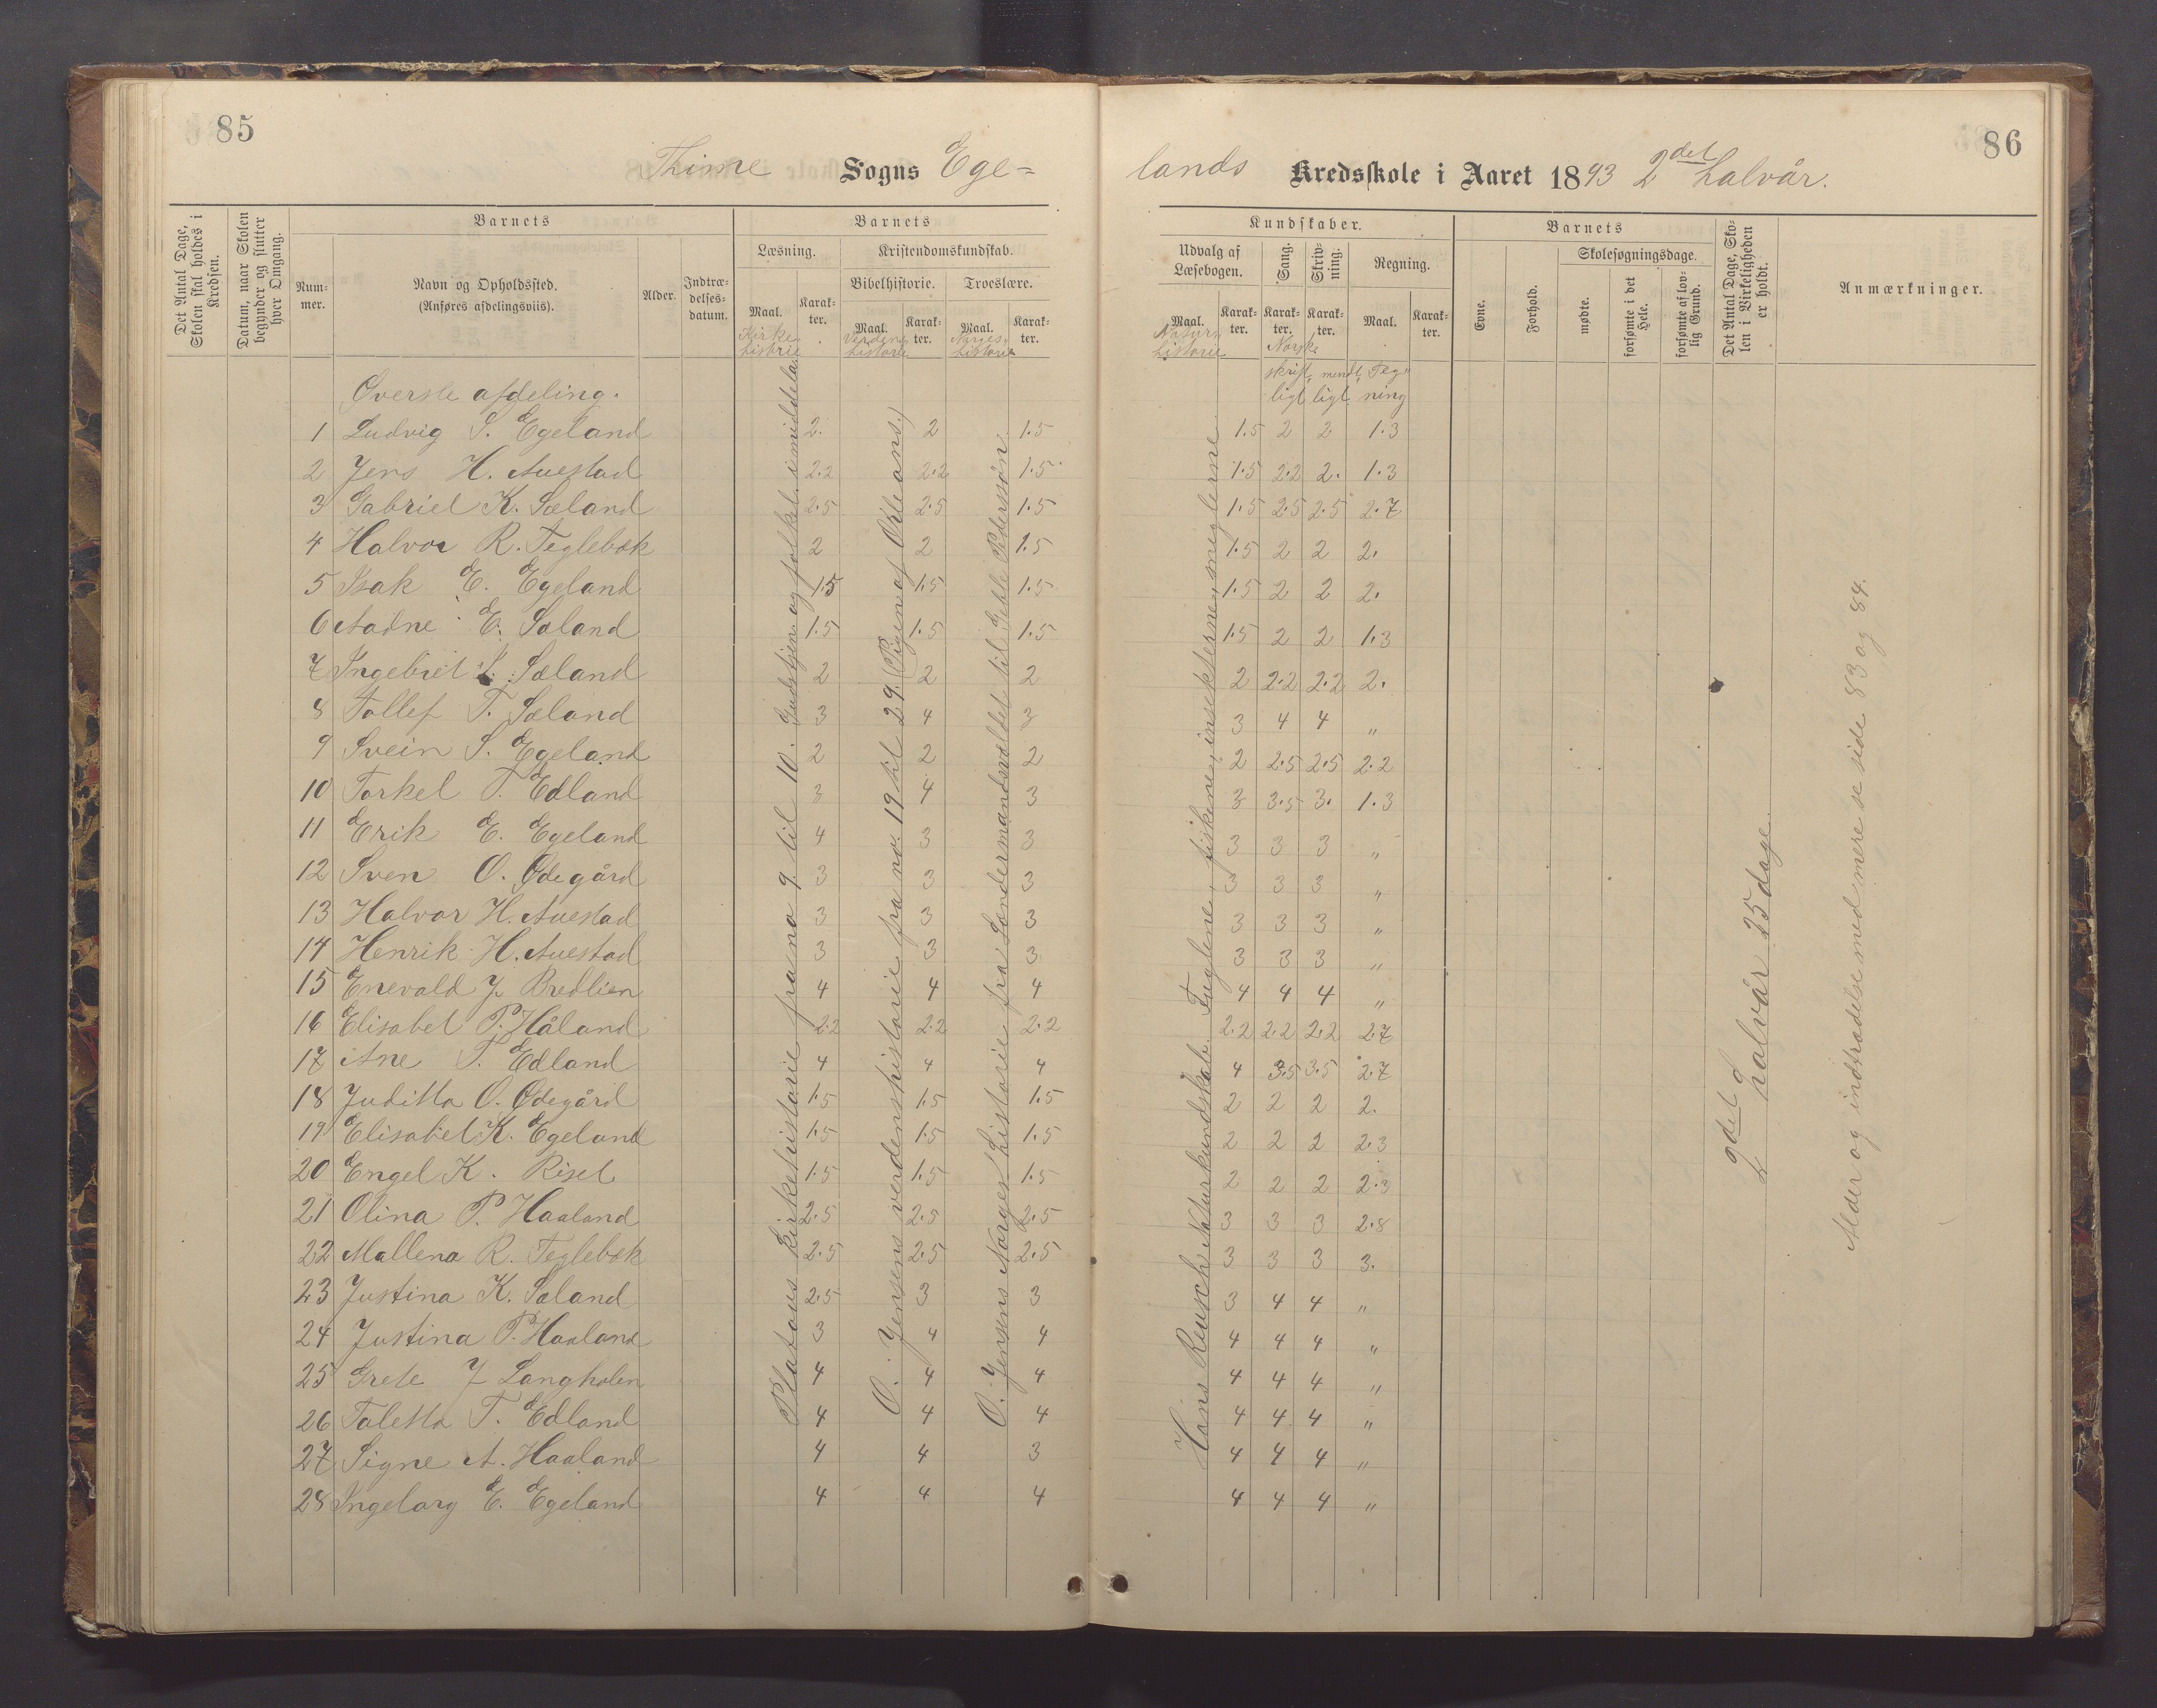 85
Thime Sogns Ege=
Det Antal Dage, Skolen skal holdes i Kredsen.
Datum, naar Skolen begynder og slutter hver Omgang.
Barnets
Nummer.
Navn og Opholdssted.
(Anføres afdelingsviis).
Alder.
Indtrædelsesdatum.
Barnets
Læsning.
Kristendomskundskab.
Bibelhistorie.
Troeslære.
Maal. Karakter. Maal. Karakter. Maal. Karakter.
Kirke historie Verdens historie Norges historie
Øverste afdeling.
1 Ludvig S. Egeland 2. 2 1.5
2 Jens H. Auestad 2.2 2.2 1.5
3 Gabriel K. Sæland 2.5 2.5 1.5
4 Halvor R. Teglebæk 2 2 1.5
5 Isak E. Egeland 1.5 1.5 1.5
6 Aadne E. Sæland 1.5 1.5 1.5
7 Ingebret S. Sæland 2 2 2
8 Tollef T. Sæland 3 4 3
9 Svein S. Egeland 2 2 2
10 Torkel T. Edland 3 4 3
11 Erik E. Egeland 4 3 3
12 Sven O. Ødegård 3 3 3
13 Halvor H. Auestad 3 3 3
14 Henrik H. Auestad 3 3 3
15 Enevald J. Bredlien 4 4 4
16 Elisabet P. Håland 2.2 2.2 2.2
17 Ane T. Edland 4 4 4
18 Juditta O. Ødegård 1.5 1.5 1.5
19 Elisabet K. Egeland 1.5 1.5 1.5
20 Engel K. Risel 1.5 1.5 1.5
21 Olina P. Haaland 2.5 2.5 2.5
22 Mallena R. Teglebæk 2.5 2.5 2.5
23 Justina K. Sæland 2.5 3 3
24 Justina P. Haaland 3 4 4
25 Grete J Langholen 4 4 4
26 Taletta T. Edland 4 4 4
27 Signe A. Haaland 4 4 3
28 Ingeborg E. Egeland 4 4 4
Platous kirkehistorie fra no 9 til 10. Gudstjen. og folket i middelal.
O. Jensens verdenshistorie fra no. 19 til 29. (Pigen af Orleans.)
O. Jensens Norges historie fra Søndermandsvaldet til Geble Pederssøn.
86
lands Kredsskole i Aaret 1893 2det halvår.
Kundskaber.
Udvalg af Læsebogen.
Sang.
Skrivning.
Regning.
Maal. Karakter. Karakter. Karakter. Maal. Karakter.
Natur historie Norsk
skriftligt mundtligt Tegning
Barnets
Evne.
Forhold.
Skolesøgningsdage.
mødte.
forsømte i det Hele.
forsømte af lovlig Grund.
Det Antal Dage, Skolen i Virkeligheden er holdt.
Anmærkninger.
1.5 2 2 1.3
1.5 2.2 2. 1.3
1.5 2.5 2.5 2.7
1.5 2 2 2.
1.5 2 2 2.
1.5 2 2 1.3
2 2.2 2.2 2.
3 4 4 "
2 2.5 2.5 2.2
3 3.5 3. 1.3
3 3 3 "
3 3 3 "
3 3 3 "
3 3 3 "
4 4 4 "
2.2 2.2 2.2 2.7
4 3.5 3.5 2.7
2 2 2 2.
2 2 2 2.3
2 2 2 2.3
3 3 3 2.8
3 3 3 3.
3 4 4 "
4 4 4 "
4 4 4 "
4 4 4 "
4 4 4 "
4 4 4 "
Hans Reusch Naturkundskab. Fuglene, fiskene, insekterne, sneglerne
2det halvår 25 dage.
Alder og indtrædelse med mere se side 83 og 84.